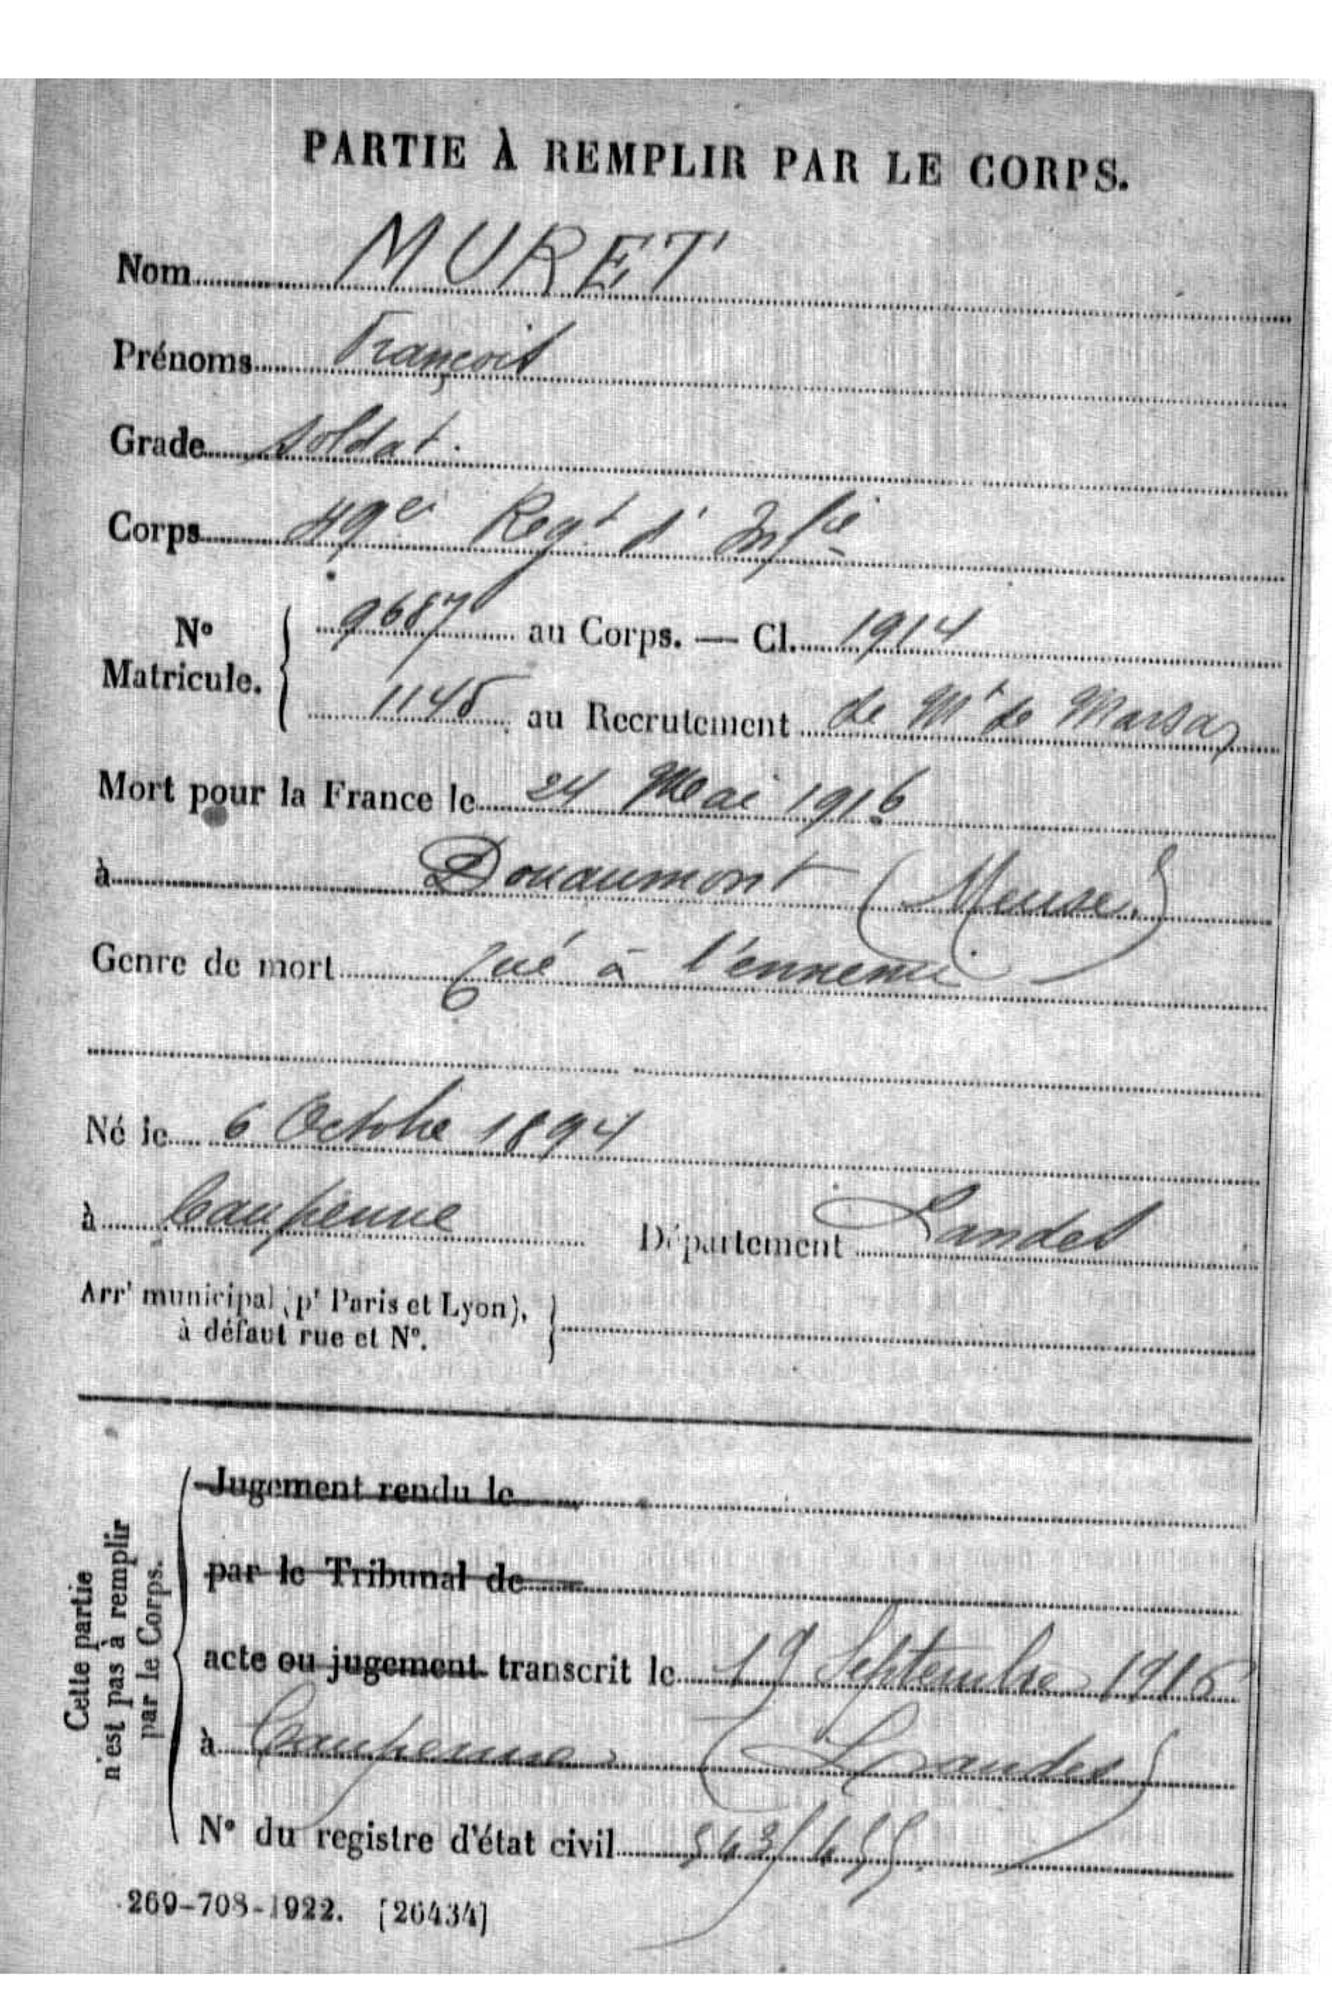 PARTIE À REMPLIR PAR LE CORPS.
Nom MURET
Prénoms François
Grade soldat.
Corps 49e Regt d'Infie
No Matricule. 9687 au Corps. — Cl. 1914
1145 au Recrutement de Mt de Marsan
Mort pour la France le 24 Mai 1916
à Douaumont (Meuse.)
Genre de mort Tué à l'ennemi
Né le 6 Octobre 1894
à Caupenne Département Landes
Arrt municipal (pr Paris et Lyon),
à défaut rue et No.
Cette partie
n'est pas à remplir
par le Corps.
Jugement rendu le
par le Tribunal de
acte ou jugement transcrit le 19 Septembre 1916
à Caupenne (Landes)
No du registre d'état civil
269-708-1922. [26434]